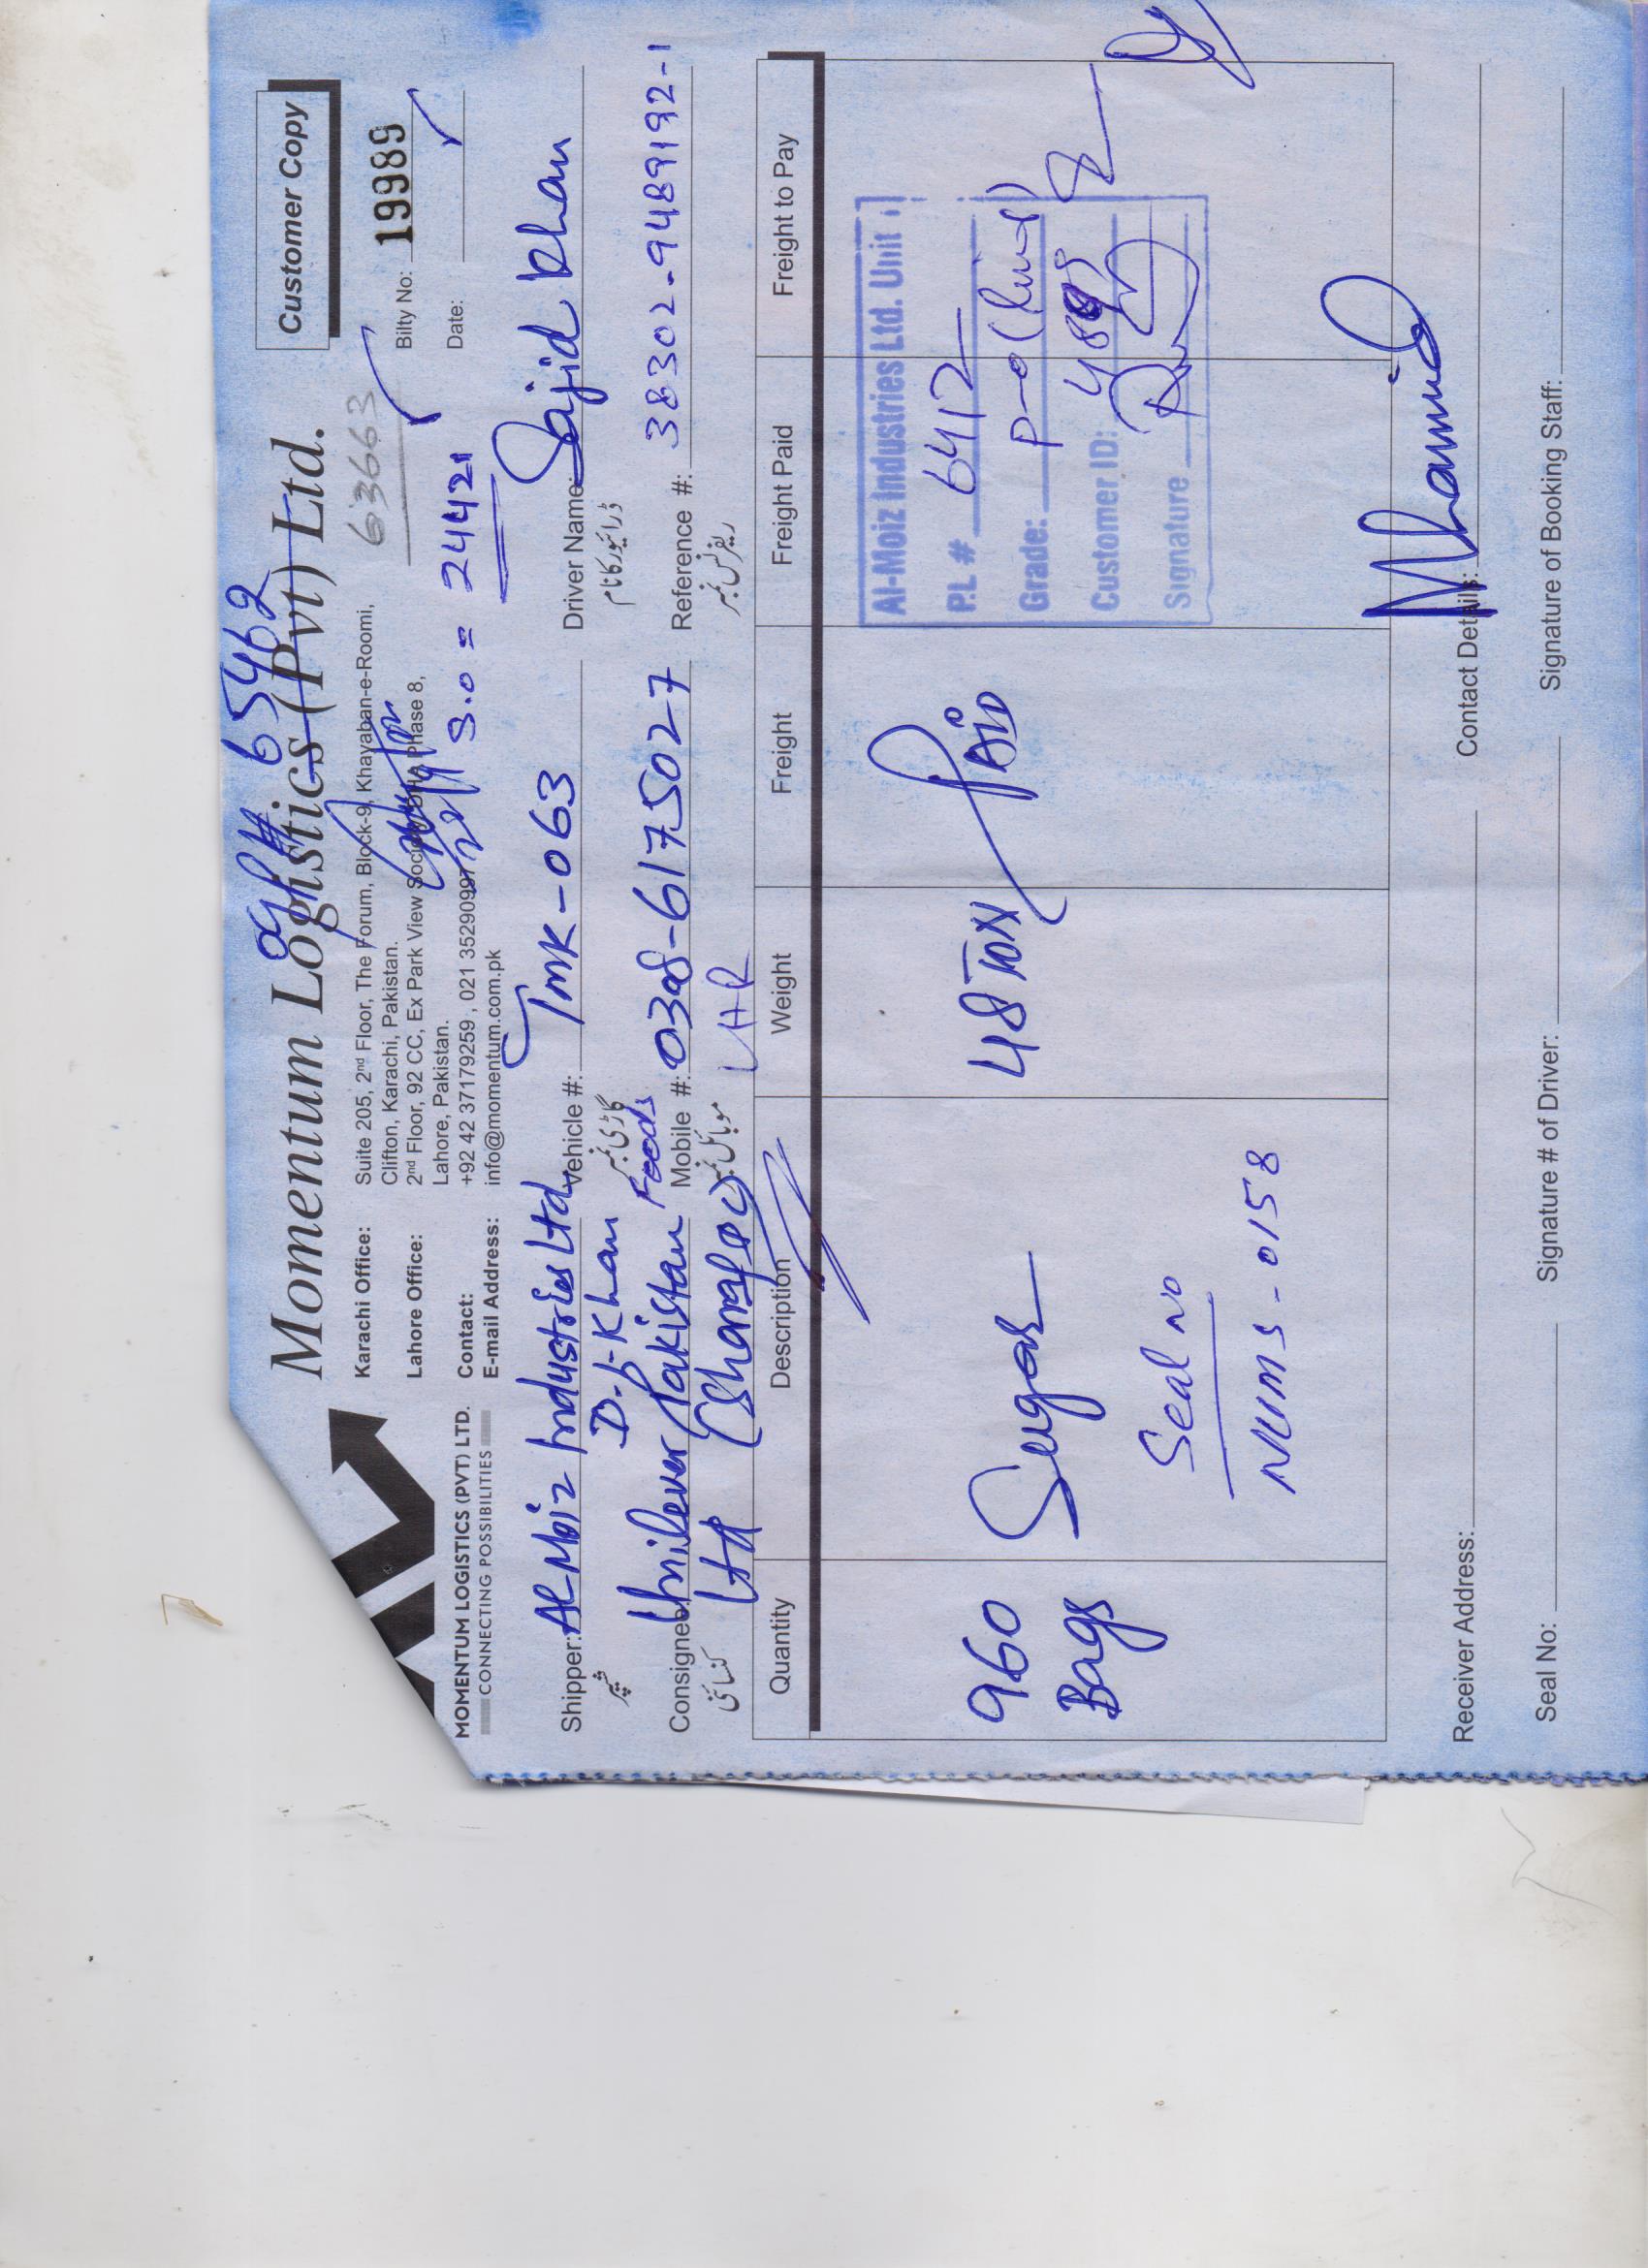 ogp# 65462
Customer Copy
Momentum Logistics (Pvt) Ltd.
63663
Bilty No: 19989
Date:
Karachi Office: Suite 205, 2nd Floor, The Forum, Block-9, Khayaban-e-Roomi,
Clifton, Karachi, Pakistan.
Lahore Office: 2nd Floor, 92 CC, Ex Park View Society, Phase 8,
Lahore, Pakistan.
Contact: +92 42 37179259 , 021 35290997
E-mail Address: info@momentum.com.pk
S.O = 24421
MOMENTUM LOGISTICS (PVT) LTD.
CONNECTING POSSIBILITIES
Shipper: AL-Moiz Industries Ltd
D-I-Khan
شپر
Vehicle #: TMK-063
گاڑی نمبر
Driver Name: Sajid Khan
ڈرائیور کا نام
Consignee: Unilever Pakistan Foods
Ltd (Sharafeo) LHR
کنسائنی
Mobile #: 0308-6175027
موبائل نمبر
Reference #: 38302-9489192-1
ریفرنس نمبر
Quantity Description Weight Freight Freight Paid Freight to Pay
960 Bags
Sugar
48 TON
PAID
Seal No
NUMS-0158
Al-Moiz Industries Ltd. Unit
P.L # 6412
Grade: P-o
Customer ID:
Signature
Receiver Address: Contact Details:
Seal No: Signature # of Driver: Signature of Booking Staff: